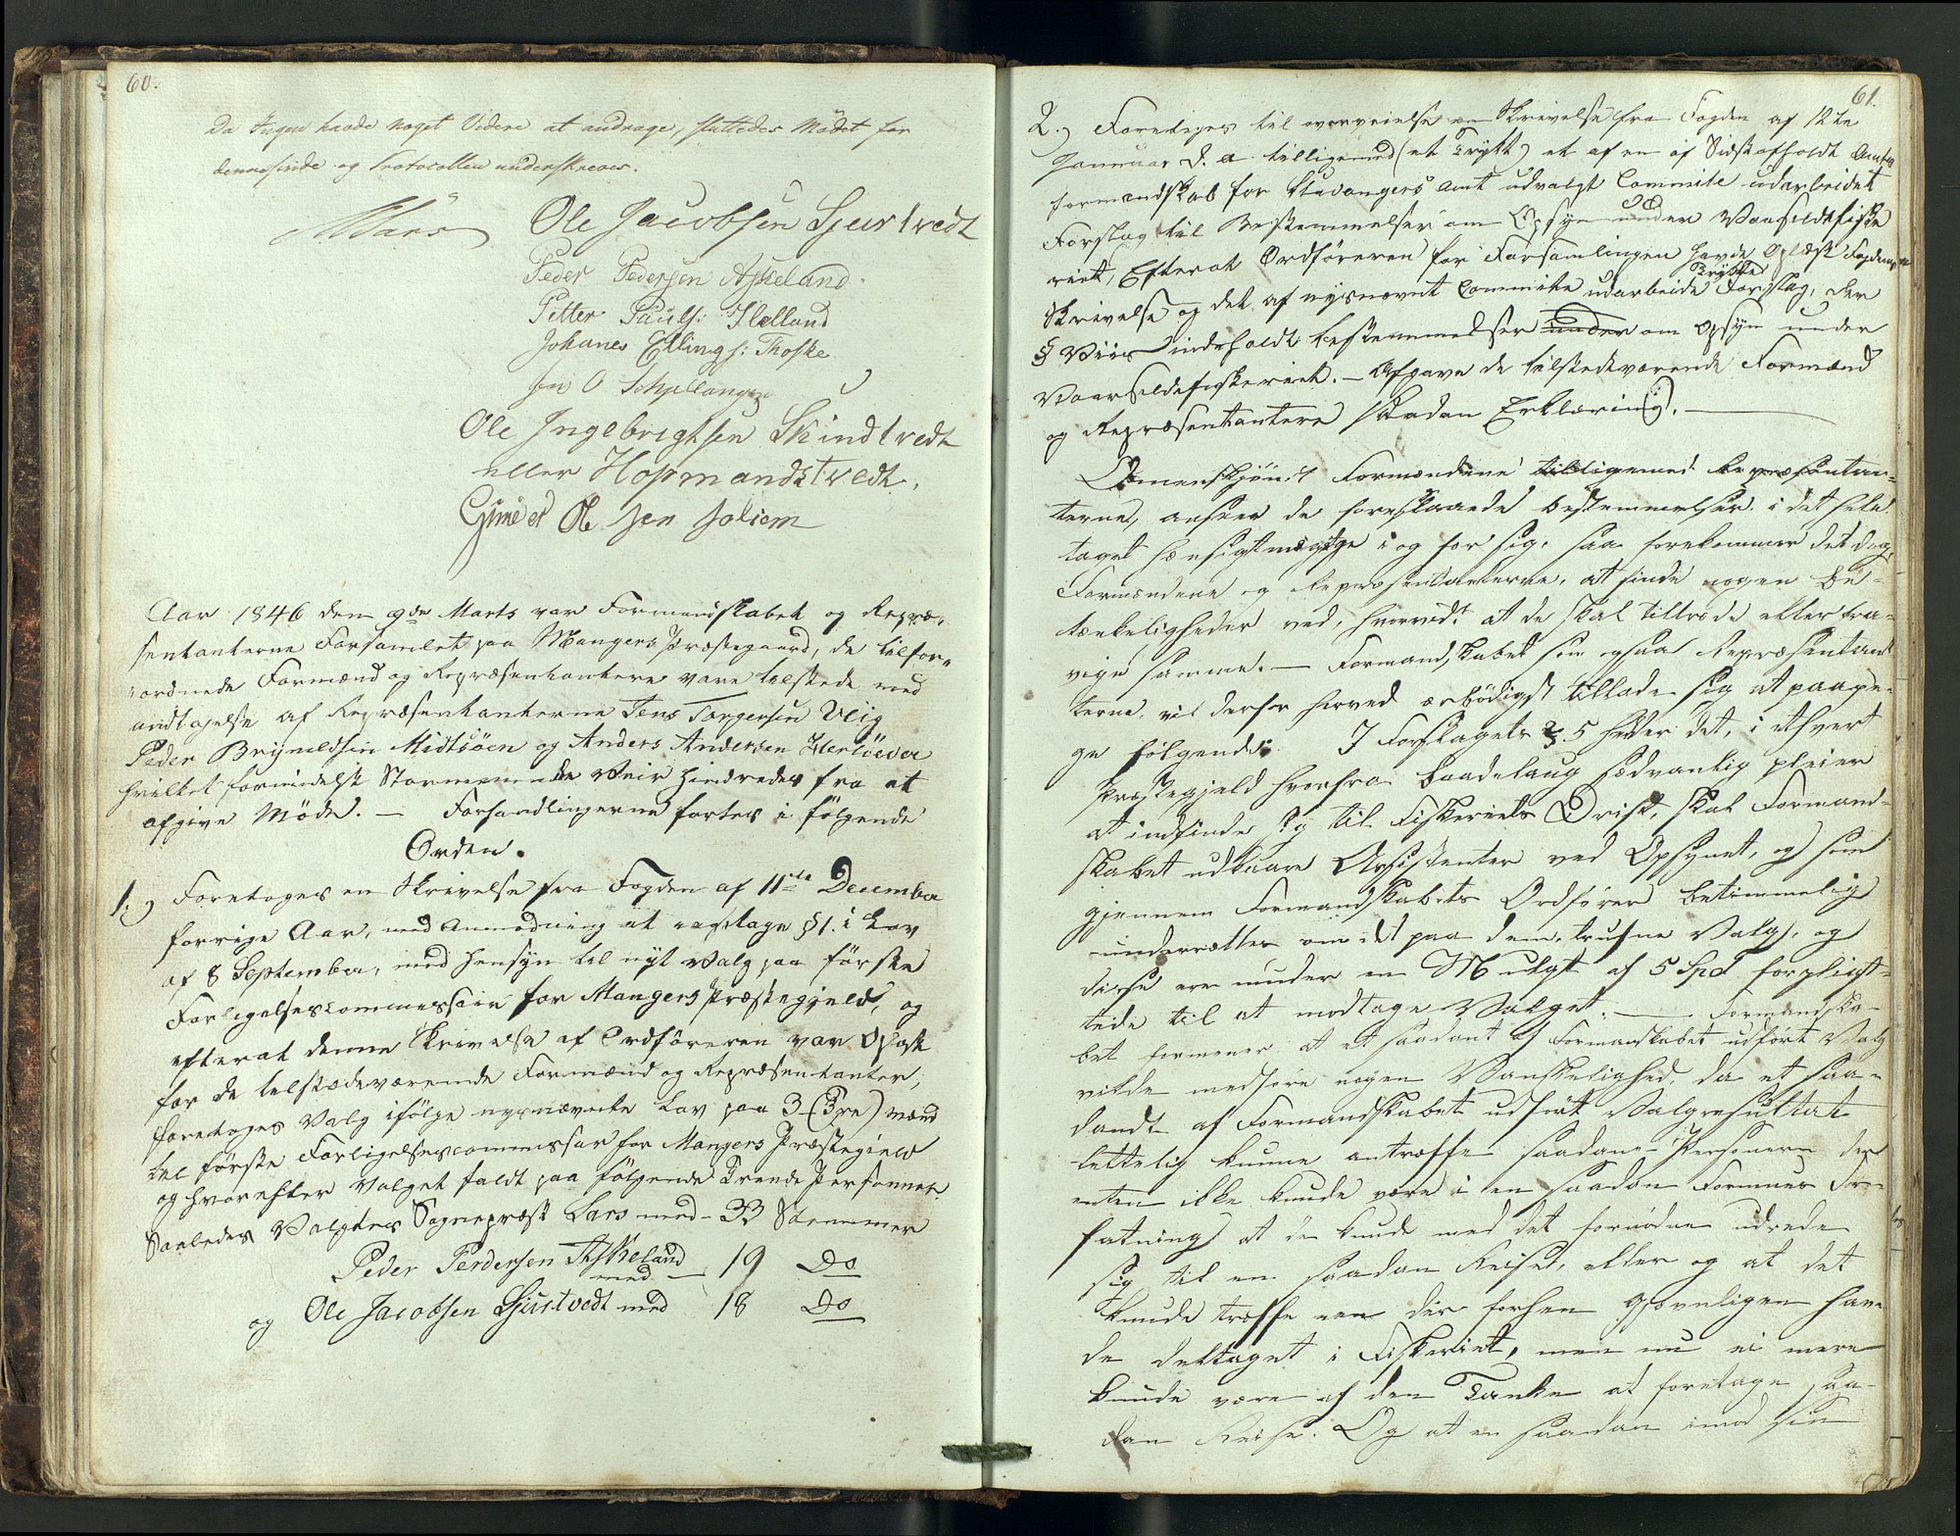 60.
Da Ingen havde noget Videre at andrage, sluttedes Mødet for
dennesinde og Protocollen underskreves.
Ole Jacobsen Sjurtvedt
Peder Pedersen Askeland.
Petter Pauls: Hælland
Johanes Ellings: Toske
Ole Ingebrigtsen Skindtvedt
eller Hopmandstvedt.
Ole sen
Aar 1846 den 9de Marts var Formandskabet og Repræ-
sentanterne Forsamlet paa Mangers Præstegaard, de tilfor-
ordnede Formænd og Repræsentantere vare tilstede med
undtagelse af Repræsentanterne Jens Torgersen Ulig
Peder Brynildsen Midtsöen og Anders Andersen Hertöeva
hvilket formedelst Stormende Veir hindredes fra at
afgive Møde. — Forhandlingerne fortes i følgende
Orden.
1.) Foretoges en Skrivelse fra Fogden af 11te December
forrige Aar, med Anmodning at iagttage § 1. i Lov
af 8 September, med Hensyn til nyt Valg paa første
Forligelsescommission for Mangers Præstegjeld, og
efterat denne Skrivelse af Ordføreren var Oplæst
for de tilstædeværende Formænd og Repræsentanter,
foretoges Valg ifølge nysnævnte Lov paa 3 (Tre) mænd
til første Forligelsescommissær for Mangers Præstegield
og hvorefter Valget faldt paa følgende Trende Personer
Saaledes Valgtes Sognepræst Lars med - 33 Stemmer
Peder Perdersen Askeland
med — 19 Do
og Ole Jacobsen Sjurtvedt med 18 Do
61.
2.) Foretoges til overveielse en Skrivelse fra Fogden af 12te
Januar d. a. tilligemed (et Trykt) et af en af Sidstafholdt Amts
formandskab for Stavangers Amt udvalgt Committe udarbeidet
Forslag til Bestemmelser om Opsyn under Vaarsildefiske
riet, Efterat Ordføreren for Forsamlingen havde Oplæst Fogdens
Skrivelse og det af nysnævnt Committe udarbeide Trykte Forslag, der
§ Viis indeholdt bestemmelser under om Opsyn under
Vaarsildefiskeriet. — Afgave de tilstedeværende Formænd
og Repræsentantere saadan Erklæring. —
Omenskjöndt Formændene tilligemed Repræsentan-
terne, ansee de foreslaaede bestemmelser i det hele
taget hensigtmæssige i og for sig, saa forekommer det dog
Formændene og Repræsentanterne, at finde nogen Be-
tænkeligheder ved, hvorvidt at de skal tiltræde eller fra-
vige samme. — Formandskabet som ogsaa Repræsentan
terne, vil derfor herved ærbödigst tillade sig at paape-
ge følgende: I Forslagets § 5 heder det, i ethvert
Præstegjeld hvorfra Baadelaug sædvanlig pleier
at indfinde sig til Fiskeriets Drift, skal Formand-
skabet udkaare Assistenter ved Opsynet, og som
gjennem Formandskabets Ordfører betimmelig
underretter om det paa dem, trufne Valg, og
disse ere under en Mulgt af 5 Spd forpligt-
tede til at modtage Valget. — Formandska-
bet formener at et saadant af Formandskabet udført Valg
vilde medføre nogen Vanskelighed, da et saa-
dandt af Formandskabet udført Valgresultat
lettelig kunne antræffe saadane Personer der
enten ikke kunde være i en saadan Formues For-
fatning at de kunde med det fornødne udrede
sig til en saadan Reise, eller og at det
kunde træffe een der forhen Gjevnligen hav-
de deltaget i Fiskeriet, men nu ei mere
kunde være af den Tanke at foretage saa-
dan Reise. Og at en saadan imod sin